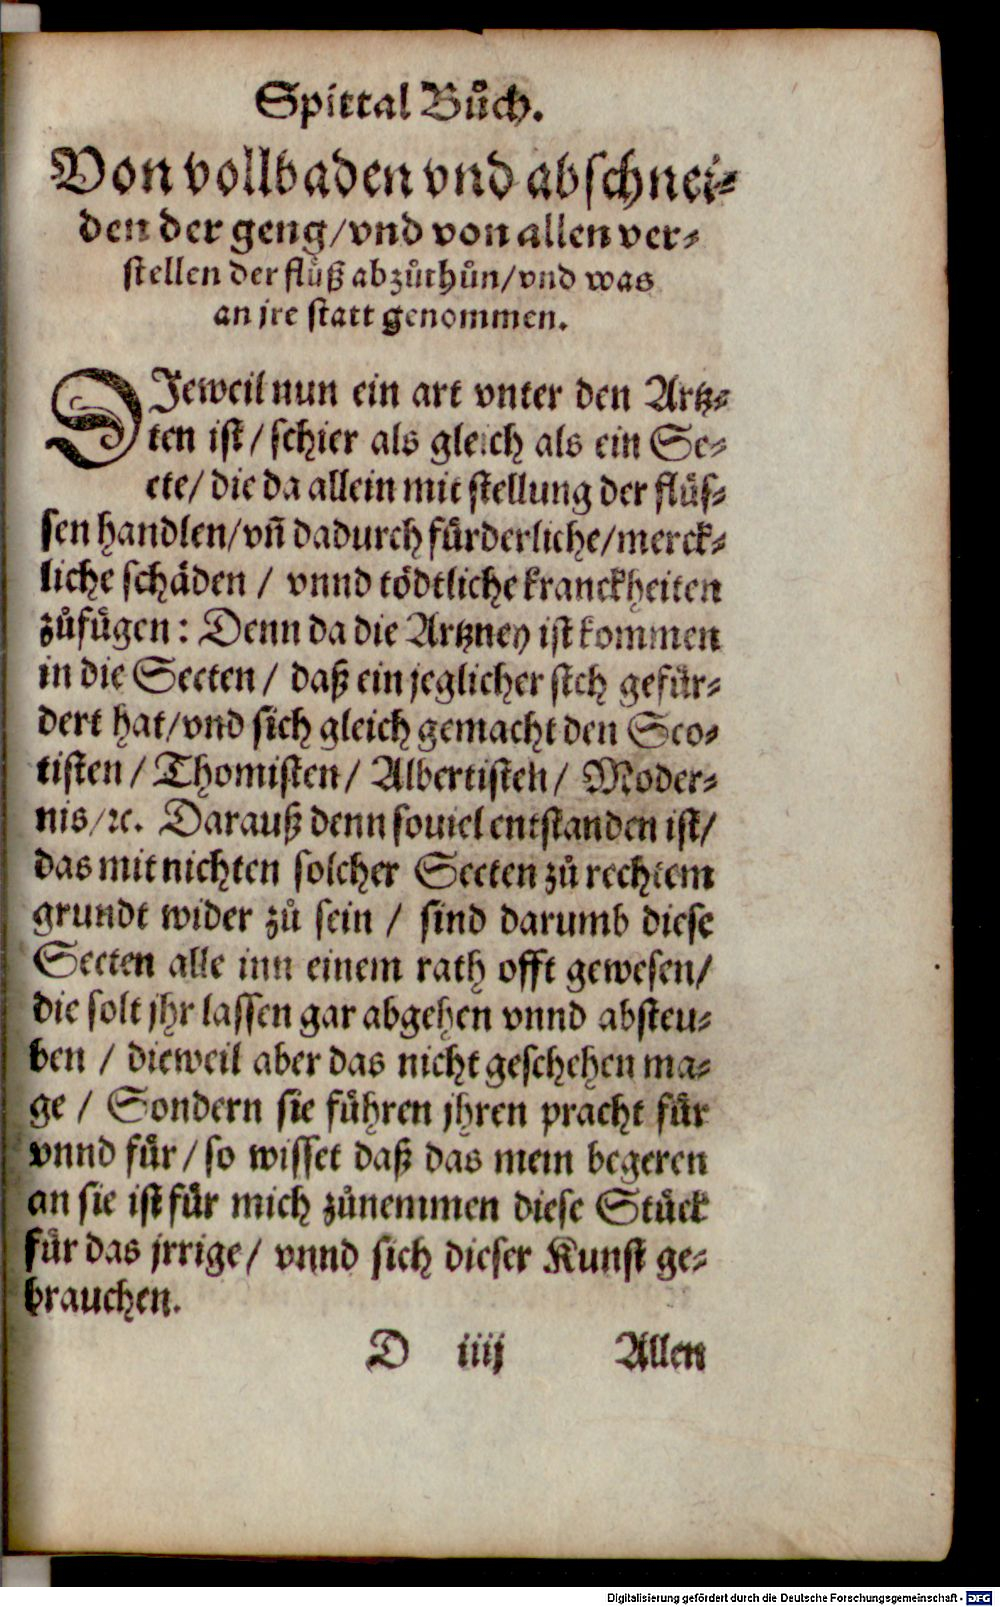 Spittal Bůch.
Von vollbaden vnd abschnei⸗
den der geng/vnd von allen ver⸗
stellen der flüß abzůthůn/vnd was
an jre statt genommen.
DJeweil nun ein art vnter den Artz⸗
ten ist/ schier als gleich als ein Se⸗
cte/ die da allein mit stellung der flüs⸗
sen handlen/vñ dadurch fürderliche/merck⸗
liche schäden / vnnd tödtliche kranckheiten
zůfügen: Denn da die Artzney ist kommen
in die Secten/ daß ein jeglicher sich gefür⸗
dert hat/vnd sich gleich gemacht den Sco⸗
tisten/ Thomisten/ Albertisten/ Moder⸗
nis/ꝛc. Darauß denn souiel entstanden ist/
das mit nichten solcher Secten zů rechtem
grundt wider zů sein / sind darumb diese
Secten alle inn einem rath offt gewesen/
die solt jhr lassen gar abgehen vnnd absteu⸗
ben / dieweil aber das nicht geschehen ma⸗
ge / Sondern sie führen jhren pracht für
vnnd für/ so wisset daß das mein begeren
an sie ist für mich zůnemmen diese Stück
für das jrrige/ vnnd sich dieser Kunst ge⸗
brauchen.
D iiij Allen
Digitalisierung gefördert durch die Deutsche Forschungsgemeinschaft - DFG